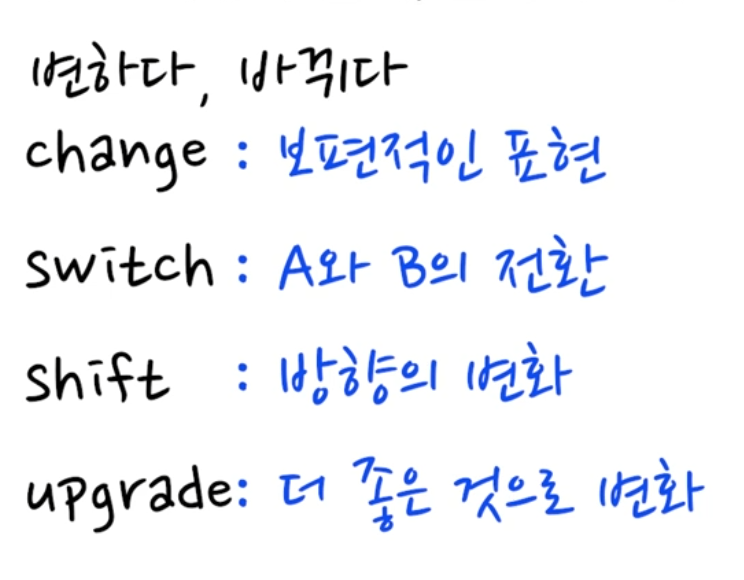 변하다, 바뀌다
change : 보편적인 표현
switch : A와 B의 전환
shift : 방향의 변화
upgrade: 더 좋은 것으로 변화